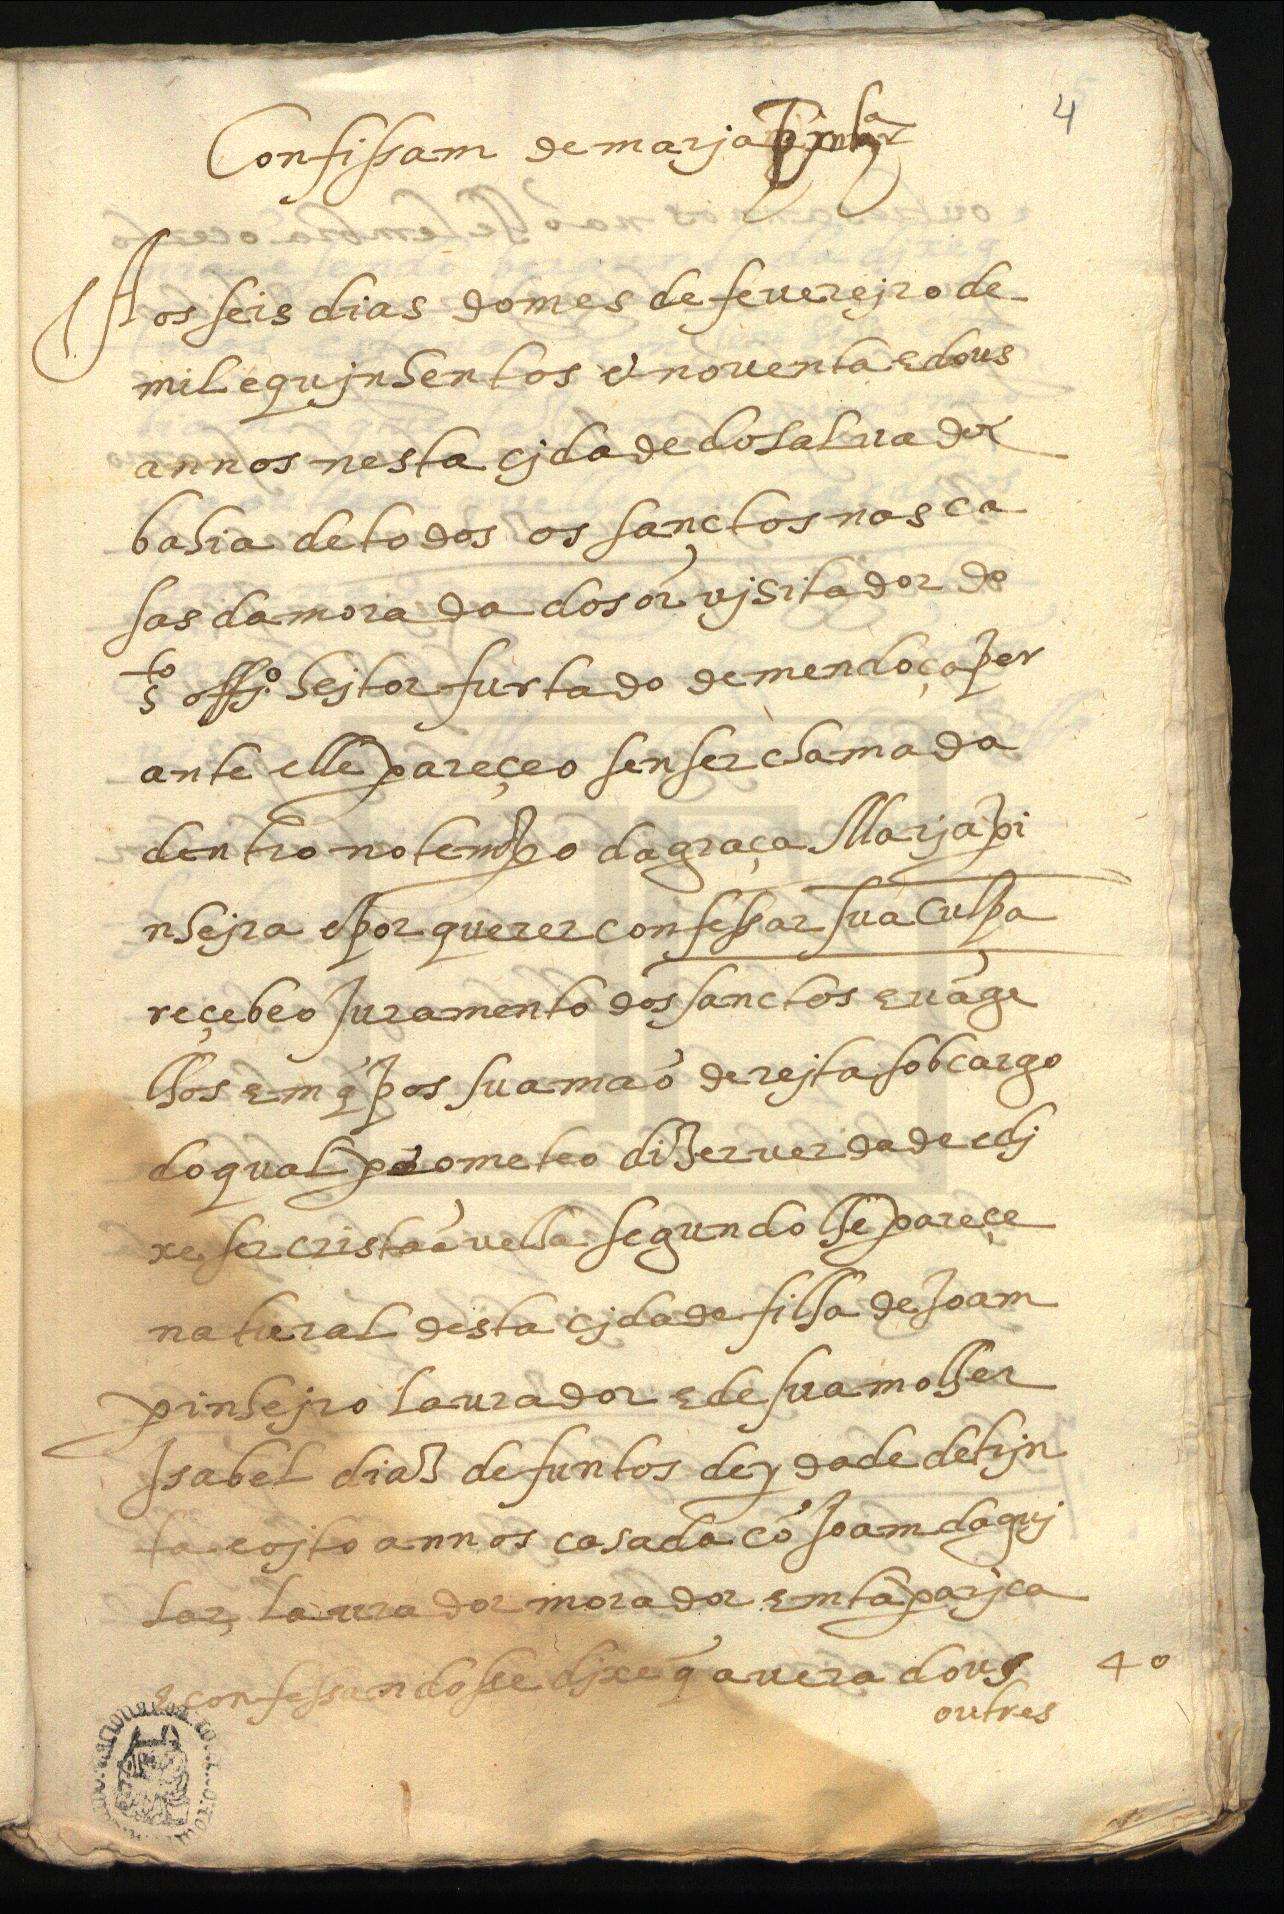 4
Confissam de marja pinhrª
Aos seis dias do mes de feuerejro de
mil e qujnhentos e nouenta e dous
annos nesta çjdade do saluador
bahia de todos os sanctos nas ca
sas da morada do sor vjsitador do
sto offjº hejtor furtado de mendoça per
ante elle pareçeo sen ser chamada
dentro no tempo da graça Marja pi
nhejra e por querer confessar sua culpa
reçebeo Juramento dos sanctos euãge
lhos em q̃ pos sua maõ derejta sob cargo
do qual prometeo dizer verdade e dj
xe ser cristaã velha segundo lhe pareçe
natural desta çjdade filha de Joam
pinhejro laurador e de sua molher
Isabel diaz defuntos de ydade de trjn
ta e ojto annos casada cõ Joam daguj
lar, laurador morador em taparjca
e confessandosse djxe q̃ auera dous
40
outres